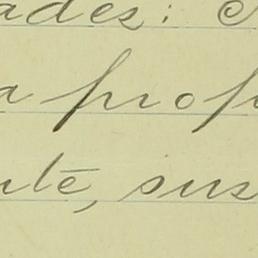 ades:
a prop
nte, sus